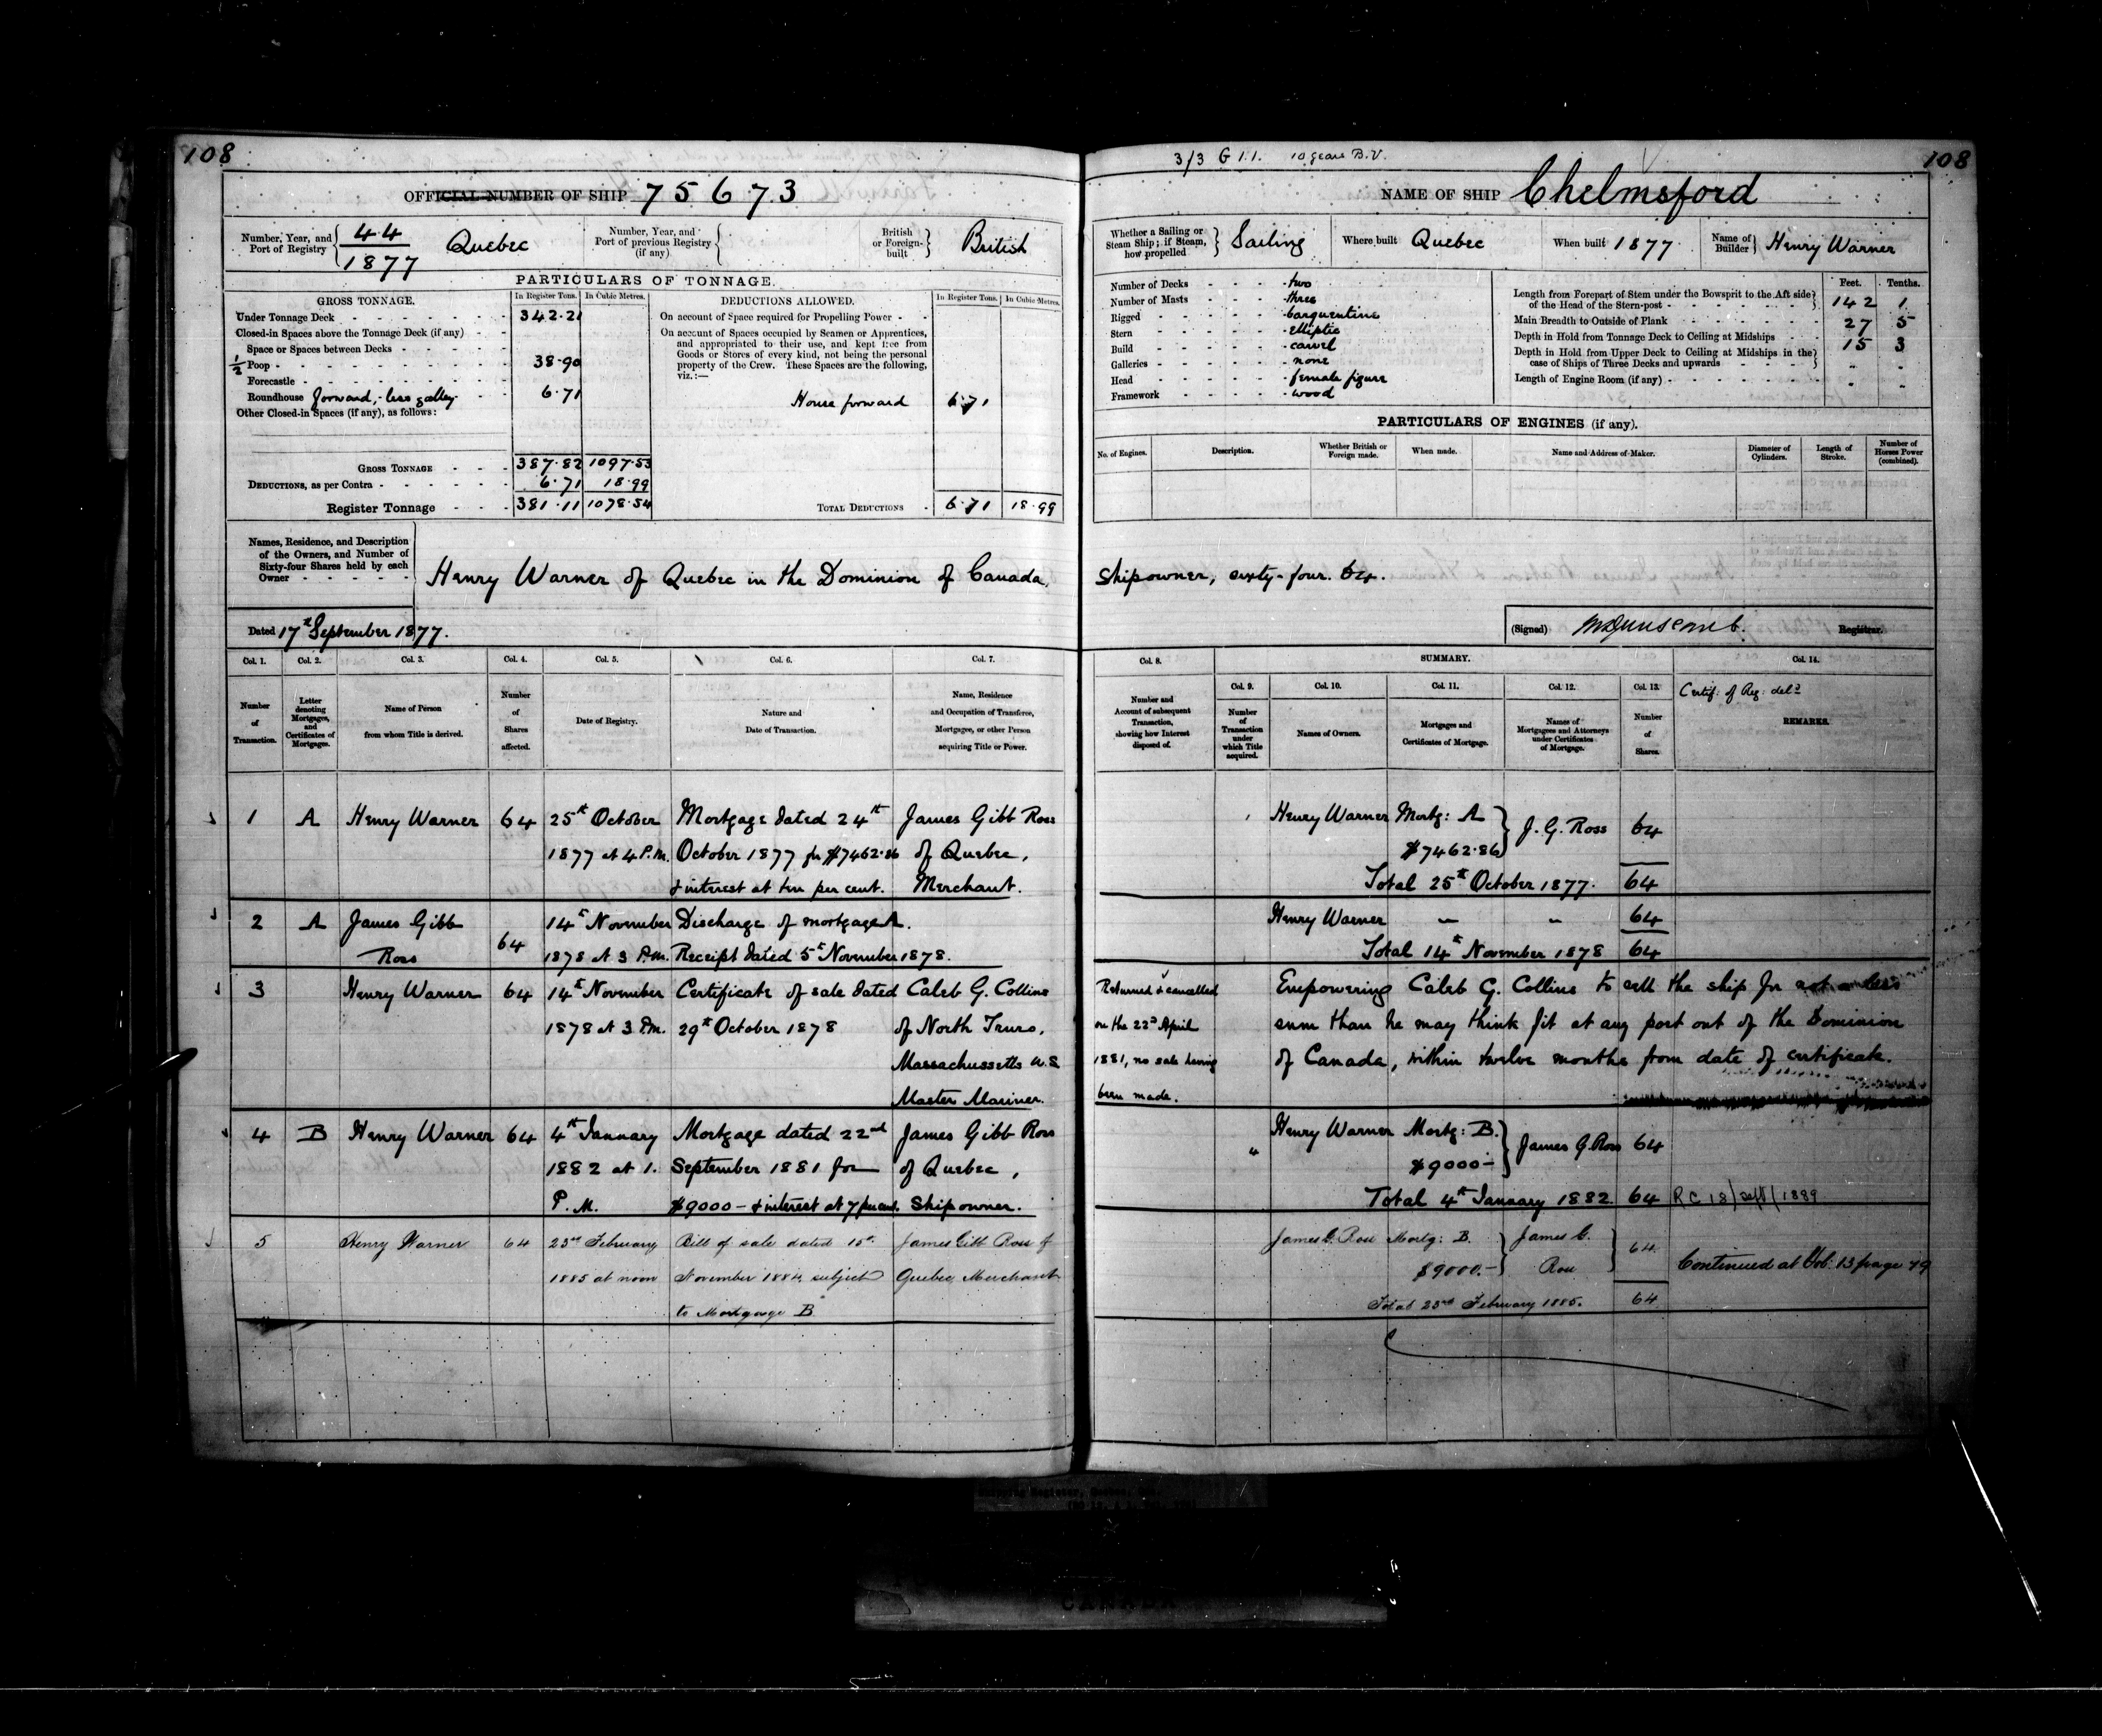 108
OFFICIAL NUMBER OF SHIP 75673
Number, Year, and Port of Registry 44 1877 Quebec
Number, Year, and Port of previous Registry (if any)
British or Foreign-built British
PARTICULARS OF TONNAGE.
GROSS TONNAGE. In Register Tons. In Cubic Metres.
Under Tonnage Deck 342.21
Closed-in Spaces above the Tonnage Deck (if any)
Space or Spaces between Decks
1/2 Poop 38.90
Forecastle
Roundhouse forward, - less galley 6.71
Other Closed-in Spaces (if any), as follows:
GROSS TONNAGE 387.82 1097.53
DEDUCTIONS, as per Contra 6.71 18.99
Register Tonnage 381.11 1078.54
DEDUCTIONS ALLOWED. In Register Tons. In Cubic Metres.
On account of Space required for Propelling Power
On account of Spaces occupied by Seamen or Apprentices,
and appropriated to their use, and kept free from
Goods or Stores of every kind, not being the personal
property of the Crew. These Spaces are the following,
viz.:—
House forward 6.71
TOTAL DEDUCTIONS 6.71 18.99
108
3/3 G 1.1. 10 years B.V.
NAME OF SHIP Chelmsford
Whether a Sailing or Steam Ship; if Steam, how propelled Sailing
Where built Quebec
When built 1877
Name of Builder Henry Warner
Number of Decks two
Number of Masts three
Rigged barquentine
Stern elliptic
Build carvel
Galleries none
Head female figure
Framework wood
Feet. Tenths.
Length from Forepart of Stem under the Bowsprit to the Aft side
of the Head of the Stern-post 142 1
Main Breadth to Outside of Plank 27 5
Depth in Hold from Tonnage Deck to Ceiling at Midships 15 3
Depth in Hold from Upper Deck to Ceiling at Midships in the
case of Ships of Three Decks and upwards
Length of Engine Room (if any)
PARTICULARS OF ENGINES (if any).
No. of Engines. Description. Whether British or Foreign made. When made. Name and Address of Maker. Diameter of Cylinders. Length of Stroke. Number of Horses Power (combined).
Names, Residence, and Description
of the Owners, and Number of
Sixty-four Shares held by each
Owner
Henry Warner of Quebec in the Dominion of Canada, Shipowner, sixty-four. 64.
Dated 17th September 1877.
(Signed) Registrar.
Col. 1. Col. 2. Col. 3. Col. 4. Col. 5. Col. 6. Col. 7.
Number of Transaction.
Letter denoting Mortgages, and Certificates of Mortgages.
Name of Person from whom Title is derived.
Number of Shares affected.
Date of Registry.
Nature and Date of Transaction.
Name, Residence and Occupation of Transferee, Mortgagee, or other Person acquiring Title or Power.
Col. 8. SUMMARY. Col. 14.
Col. 9. Col. 10. Col. 11. Col. 12. Col. 13.
Number and Account of subsequent Transaction, showing how Interest disposed of.
Number of Transaction under which Title acquired.
Names of Owners.
Mortgages and Certificates of Mortgage.
Names of Mortgagees and Attorneys under Certificates of Mortgage.
Number of Shares.
Certif: of Reg: deld
REMARKS.
1 A Henry Warner 64 25th October Mortgage dated 24th James Gibb Ross
1877 at 4 P.M. October 1877 for $7462.86 of Quebec,
& interest at ten per cent. Merchant.
Henry Warner Mortg: A J. G. Ross 64
$7462.86
Total 25th October 1877. 64
2 A James Gibb 64 14th November Discharge of mortgage A.
Ross 1878 at 3 P.M. Receipt dated 5th November 1878.
Henry Warner 64
Total 14th November 1878 64
3 Henry Warner 64 14th November Certificate of sale dated Caleb G. Collins
1878 at 3 P.M. 29th October 1878 of North Truro,
Massachussetts U.S.
Master Mariner.
Returned & cancelled
on the 22d April
1881, no sale having
been made.
Empowering Caleb G. Collins to sell the ship for not a less
sum than he may think fit at any port out of the Dominion
of Canada, within twelve months from date of certificate.
4 B Henry Warner 64 4th January Mortgage dated 22nd James Gibb Ross
1882 at 1. September 1881 for of Quebec,
P.M. $9000 - & interest at 7 per cent. Shipowner.
Henry Warner Mortg: B. James G. Ross 64
$9000 -
Total 4th January 1882 64 R C 18/Sept/1889
5 Henry Warner 64 23rd February Bill of sale dated 15th James Gibb Ross of
1885 at noon November 1884, subject Quebec, Merchant
to Mortgage B.
James G. Ross Mortg: B. James G. 64
$9000.- Ross
Total 23rd February 1885. 64
Continued at Vol. 13 page 79